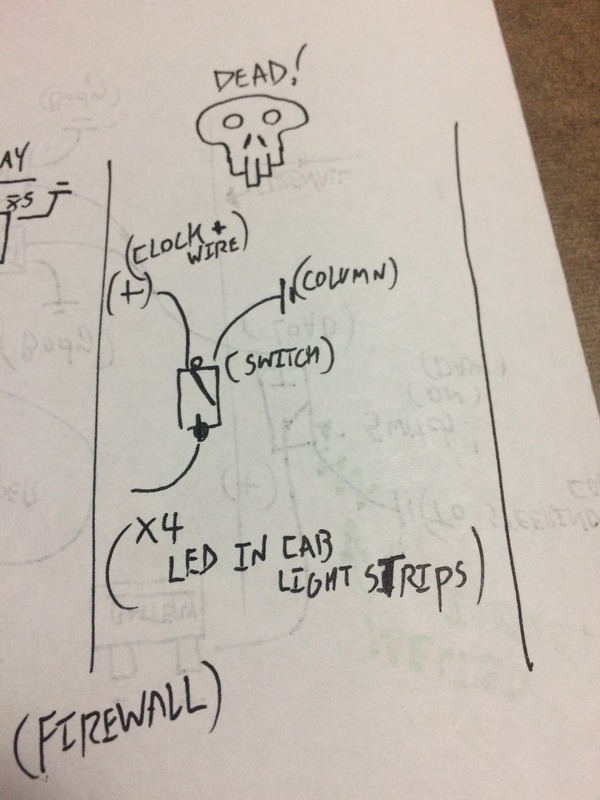 DEAD!
AY
85
(CLOCK +
WIRE)
(+)
(COLUMN)
(SWITCH)
(X4
LED IN CAB
LIGHT STRIPS)
(FIREWALL)